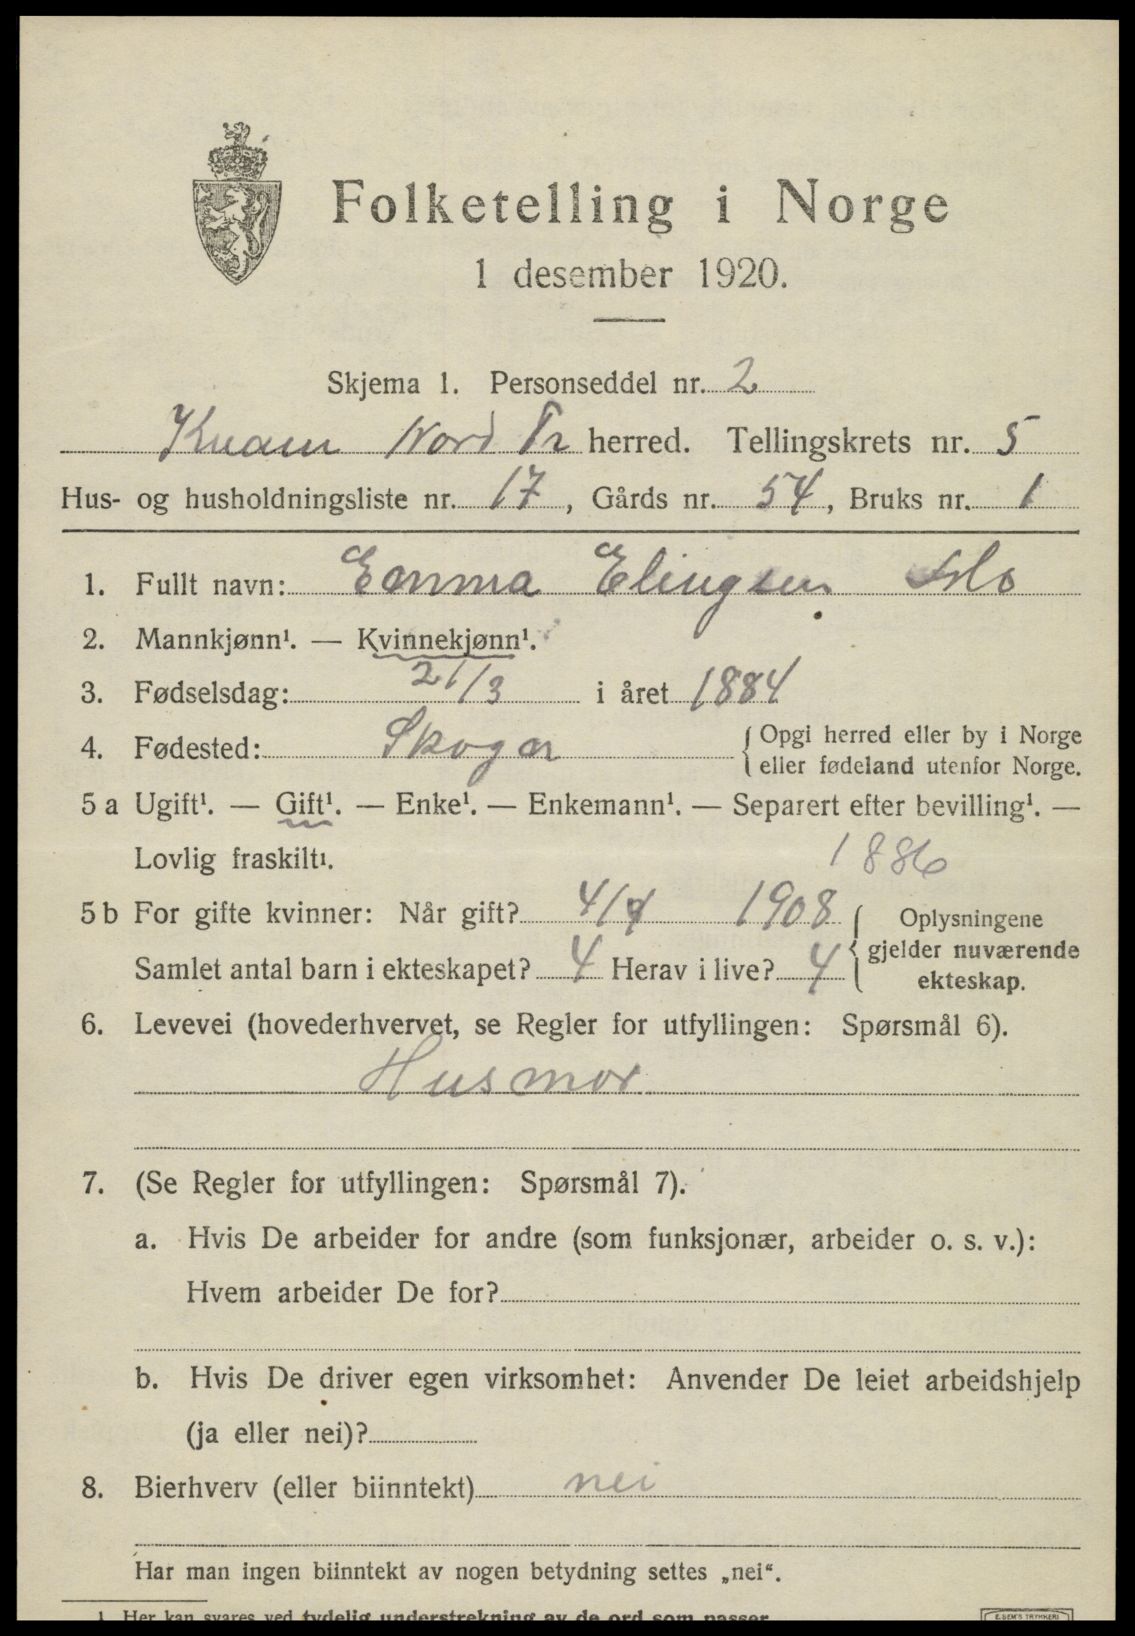 Folketelling i Norge
1 desember 1920.
Skjema 1. Personseddel nr. 2
Kvam Nord Tr herred. Tellingskrets nr. 5
Hus- og husholdningsliste nr. 17, Gårds nr. 54, Bruks nr. 1
1. Fullt navn: Emma Elingsen
2. Mannkjønn¹. — Kvinnekjønn¹.
3. Fødselsdag: 21/3 i året 1884
4. Fødested: Skoger { Opgi herred eller by i Norge
eller fødeland utenfor Norge.
5a Ugift¹. — Gift¹. — Enke¹. — Enkemann¹. — Separert efter bevilling¹. —
Lovlig fraskilt¹.
1886
5b For gifte kvinner: Når gift? 4/4 1908 { Oplysningene
gjelder nuværende
ekteskap.
Samlet antal barn i ekteskapet? 4 Herav i live? 4
6. Levevei (hovederhvervet, se Regler for utfyllingen: Spørsmål 6).
Husmor
7. (Se Regler for utfyllingen: Spørsmål 7).
a. Hvis De arbeider for andre (som funksjonær, arbeider o. s. v.):
Hvem arbeider De for?
b. Hvis De driver egen virksomhet: Anvender De leiet arbeidshjelp
(ja eller nei)?
8. Bierhverv (eller biinntekt) nei
Har man ingen biinntekt av nogen betydning settes „nei“.
1 Her kan svares ved tydelig understrekning av de ord som passer
E. SEM'S TRYKKERI